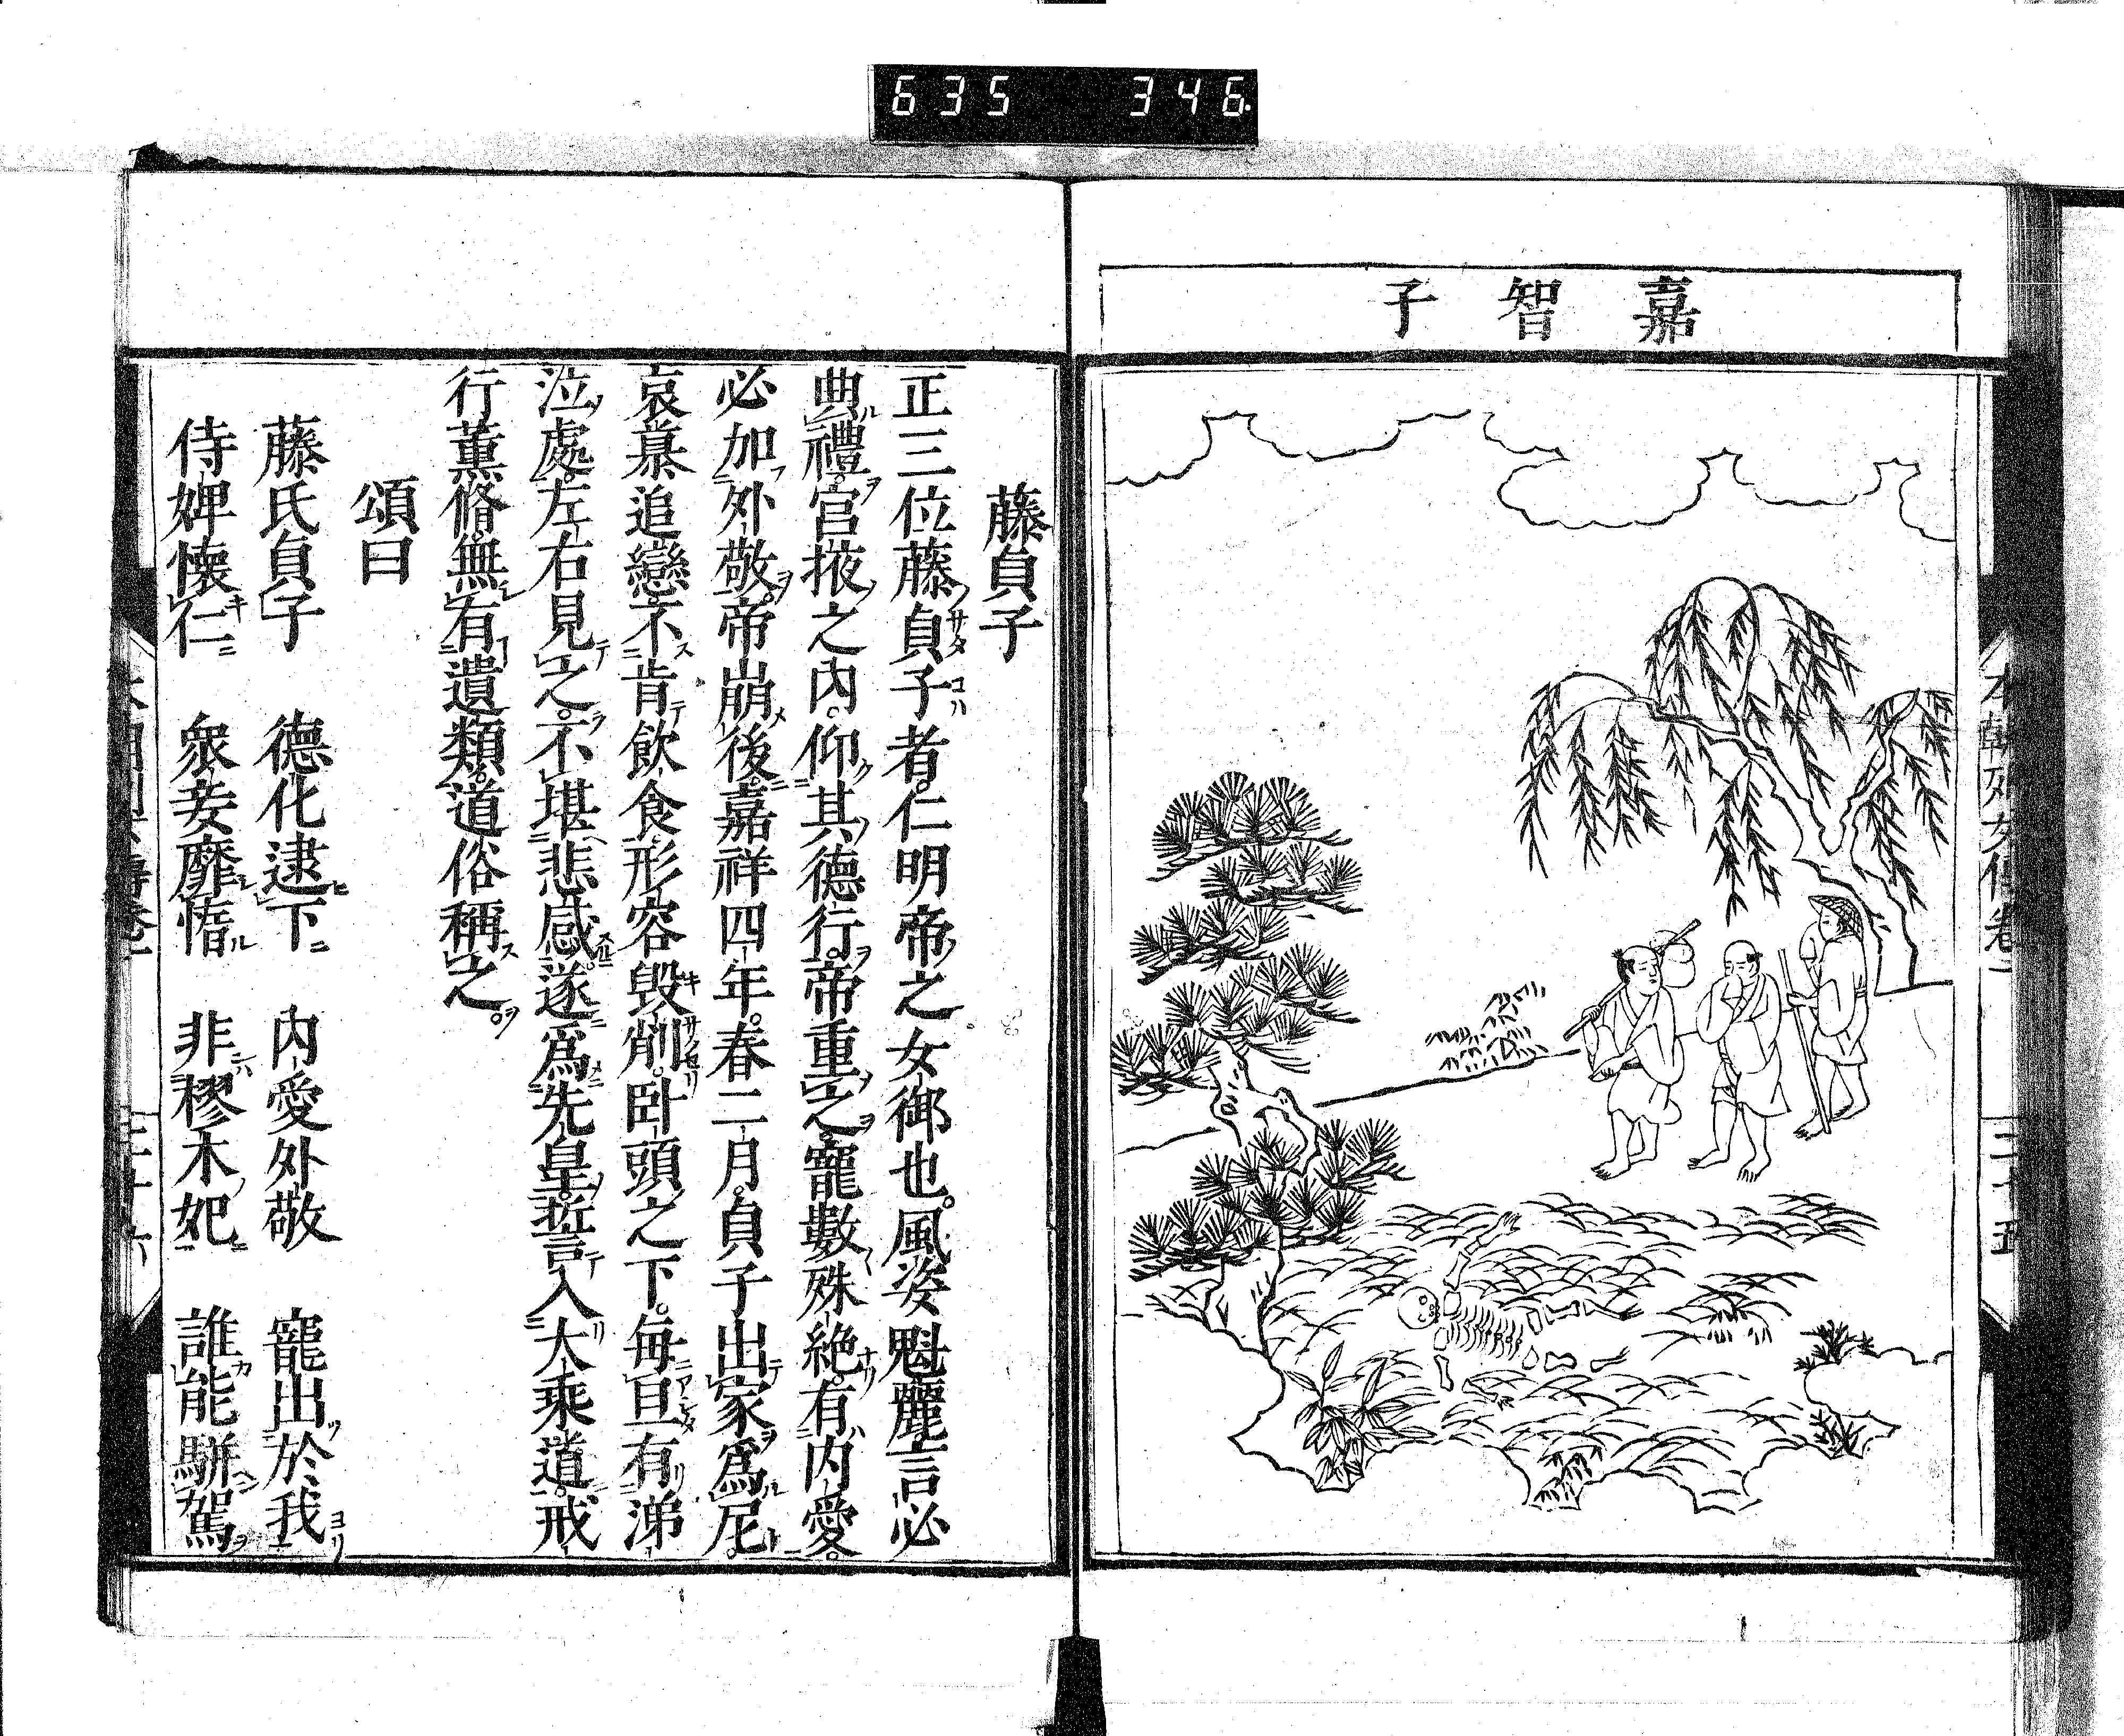 635 346
嘉智子
本朝列女傳卷一
二十五
藤貞子
正三位藤貞子者。仁明帝之女御也。風姿魁麗言必
典禮。宮掖之內。仰其德行。帝重之。寵數殊絶。有內愛。
必加外敬。帝崩後。嘉祥四年。春二月。貞子出家爲尼。
哀慕追戀。不肯飲食。形容毀削。臥頭之下。每旦有涕
泣處。左右見之。不堪悲感。遂爲先皇。誓入大乘道。戒
行薰脩。無有遺類。道俗稱之。
頌曰
藤氏貞子　德化逮下　內愛外敬　寵出於我
侍婢懐仁　衆妾靡㥽　非樛木妃　誰能騈駕